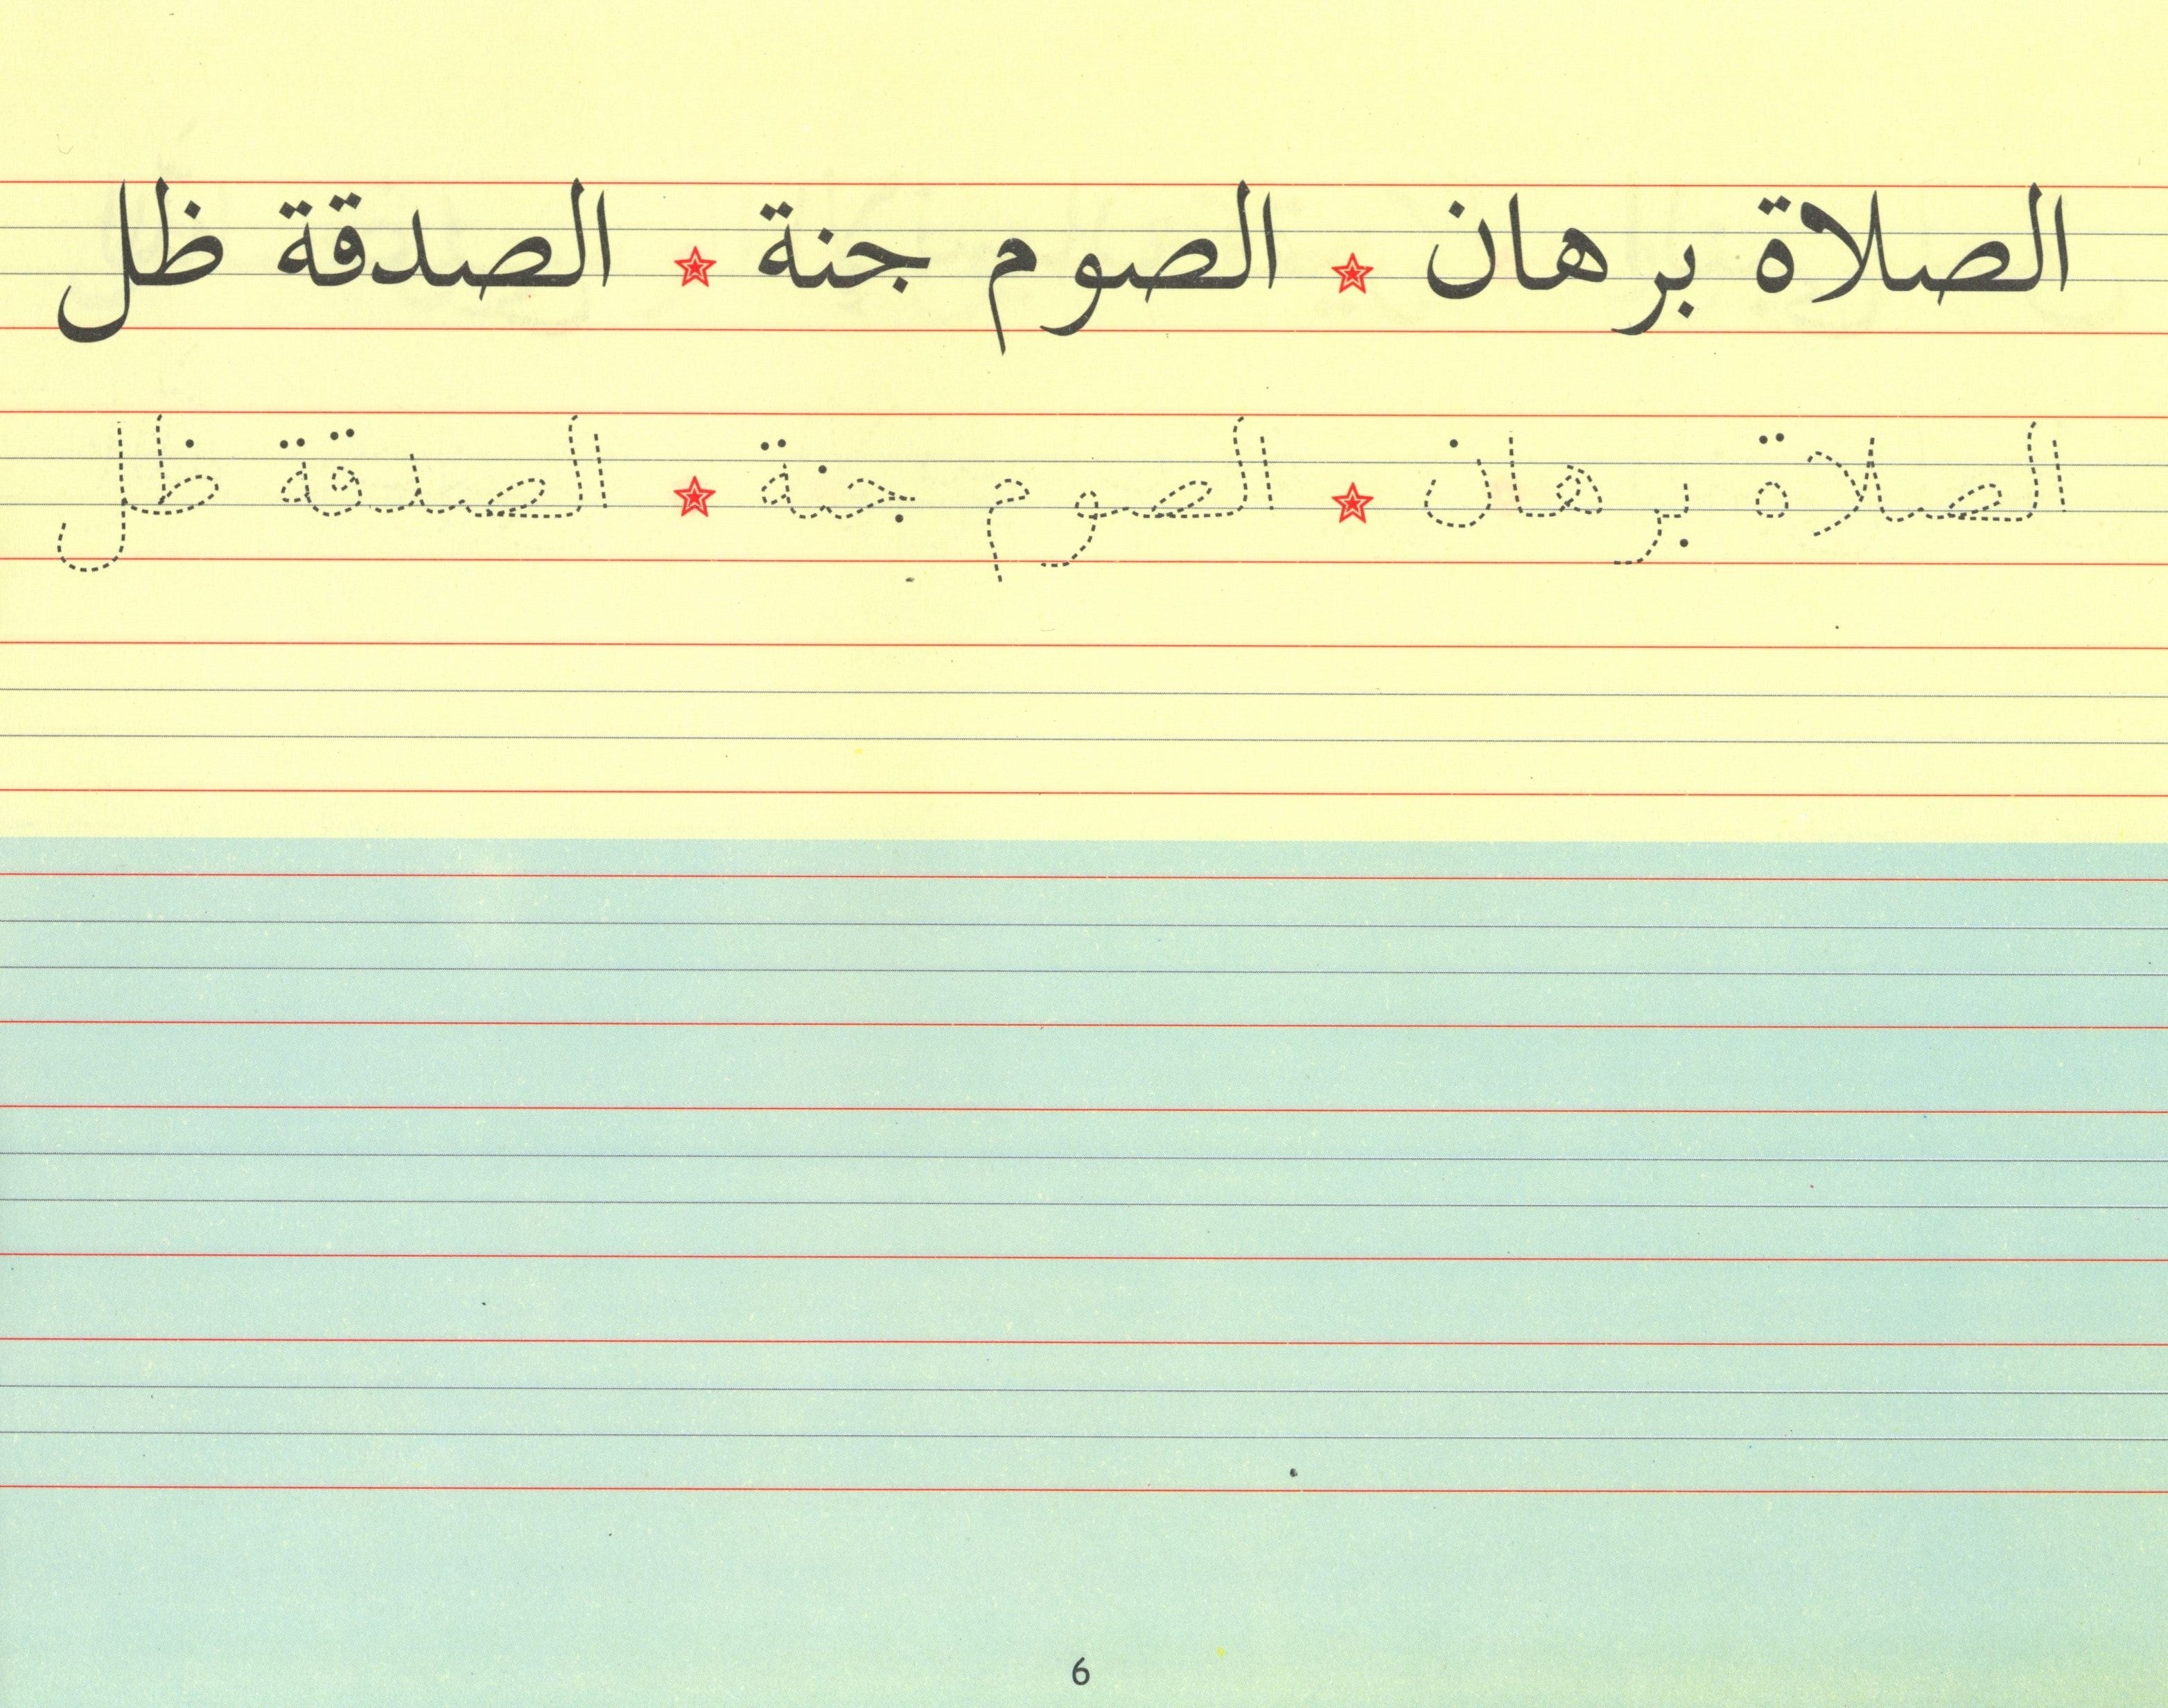 الصلاة برهان ☆ الصوم جنة ☆ الصدقة ظل
الصلاة برهان ☆ الصوم جنة ☆ الصدقة ظل
6